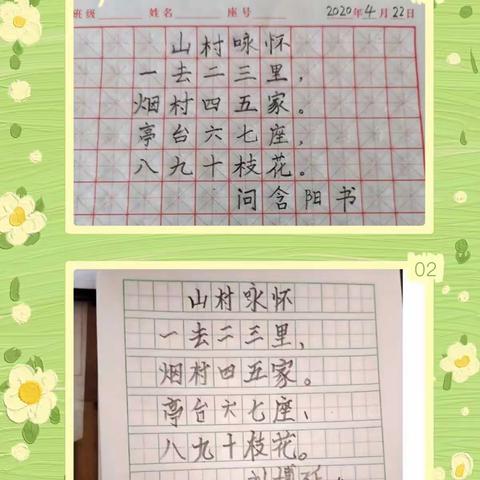 班级 姓名 座号 2020年4月22日
山村咏怀
一去二三里，
烟村四五家。
亭台六七座，
八九十枝花。
问含阳书
02
山村咏怀
一去二三里、
烟村四五家。
亭台六七座、
八九十枝花。